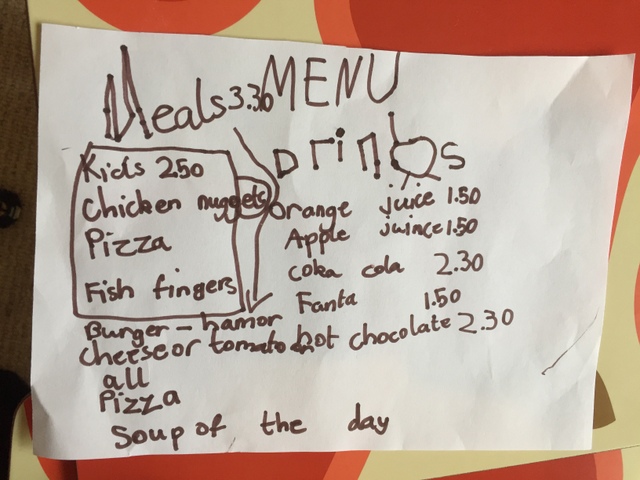 MENU
Meals 3.30
Kids 2.50
Chicken nuggets
Pizza
Fish fingers
Burger - hamor
cheese or tomato
all
Pizza
Soup of the day
Drinks
orange juice 1.50
Apple juince 1.50
coka cola 2.30
Fanta 1.50
hot chocolate 2.30